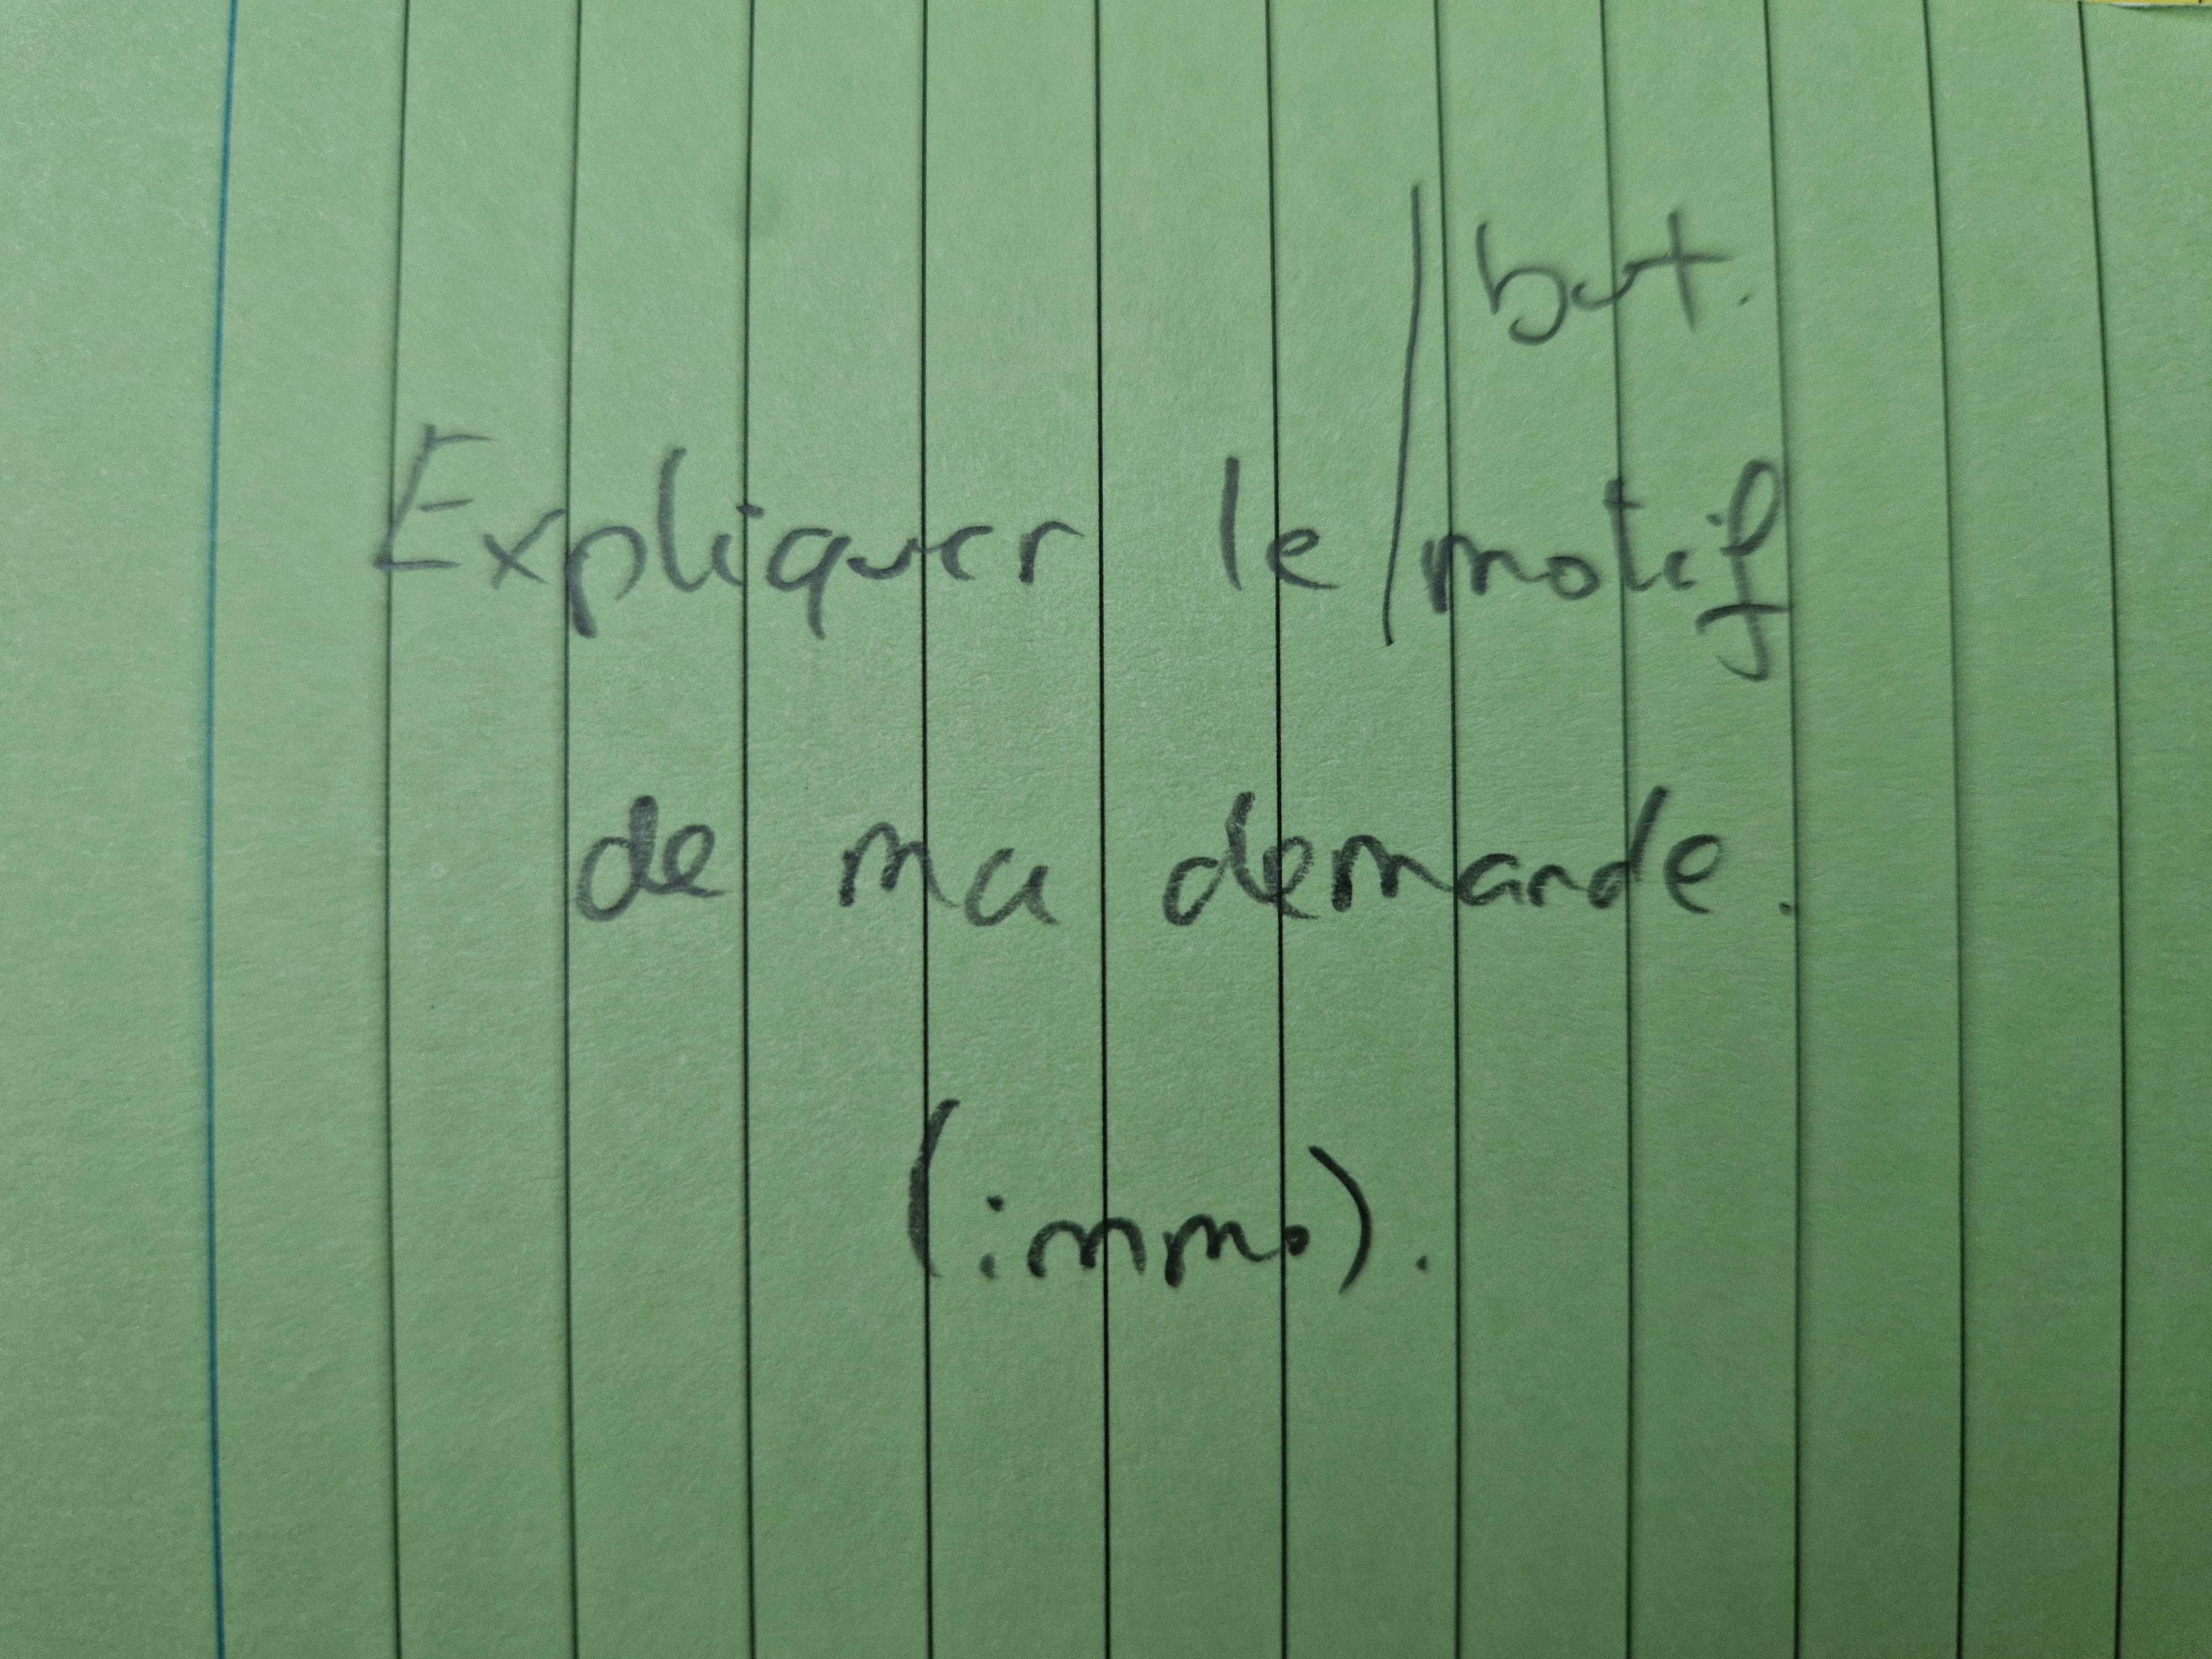 but.
Expliquer le / motif
de ma demande.
(immo).